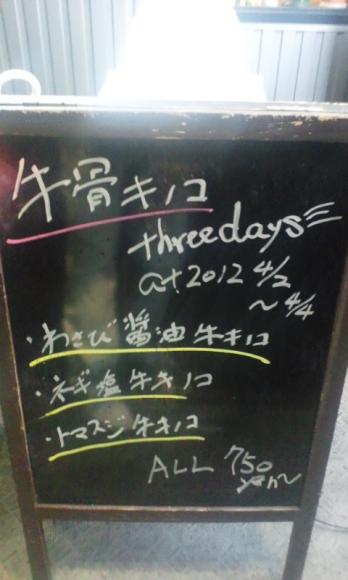 牛骨キノコ
threedays
at 2012 4/2
~ 4/4
・わさび醤油牛キノコ
・ネギ塩牛キノコ
・トマスジ牛キノコ
ALL 750
yen~